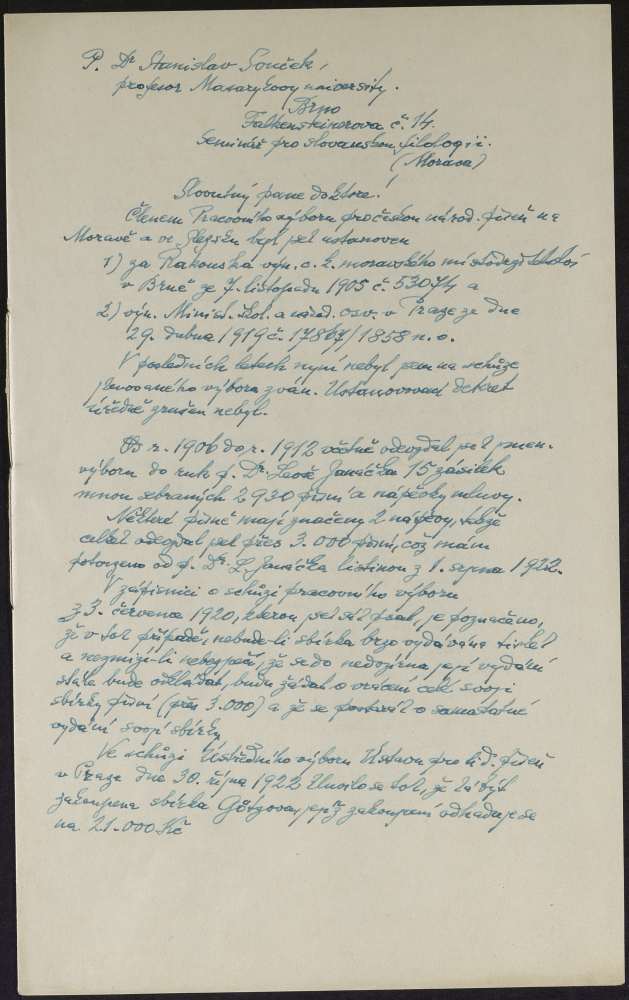 P. Dr Stanislav Souček,
profesor Masarykovy university.
Brno
Falkensteinerova č. 14.
Seminář pro slovanskou filologii.
(Morava)
Slovutný pane doktore!
Členem Pracovního výboru pro českou národ. píseň na
Moravě a ve Slezsku byl jsem ustanoven
1) za Rakouska výn. c. k. moravského
v Brně ze 7. listopadu 1905 č. 53074 a
2.) výn. Minist. škol. a národ. osv. v Praze ze dne
29. dubna 1919 č. 17867/1858 n. o.
V posledních letech nyní nebyl jsem na schůze
jmenovaného výboru zván. Ustanovovací dekret
úředně zrušen nebyl.
Od r. 1906 do r. 1912 včetně odevzdal jsem jmen.
výboru do ruk p. Dr. Leoše Janáčka 15 zásilek
mnou sebraných 2930 písní a nápěvky mluvy.
Některé písně mají značeny 2 nápěvy, takže
celkem odevzdal jsem přes 3.000 písní, což mám
potvrzeno od p. Dr. L. Janáčka listinou z 1. srpna 1922.
V zápisnici o schůzi pracovního výboru
z 3. července 1920, kterou jsem psal, je poznačeno,
že v tom případě, nebude-li sbírka brzo vydávána tiskem
a nezmizí-li nebezpečí, že se do nedozírna její vydání
stále bude odkládat, budu žádat o vrácení celé svojí
sbírky písní (přes 3.000) a že se postarám o samostatné
vydání svojí sbírky
Ve schůzi Ústředního výboru Ústavu pro lid. píseň
v Praze dne 30. října 1922 mluvilo se o tom, že má být
zakoupena sbírka Götzova, jejíž zakoupení odhaduje se
na 21.000 Kč